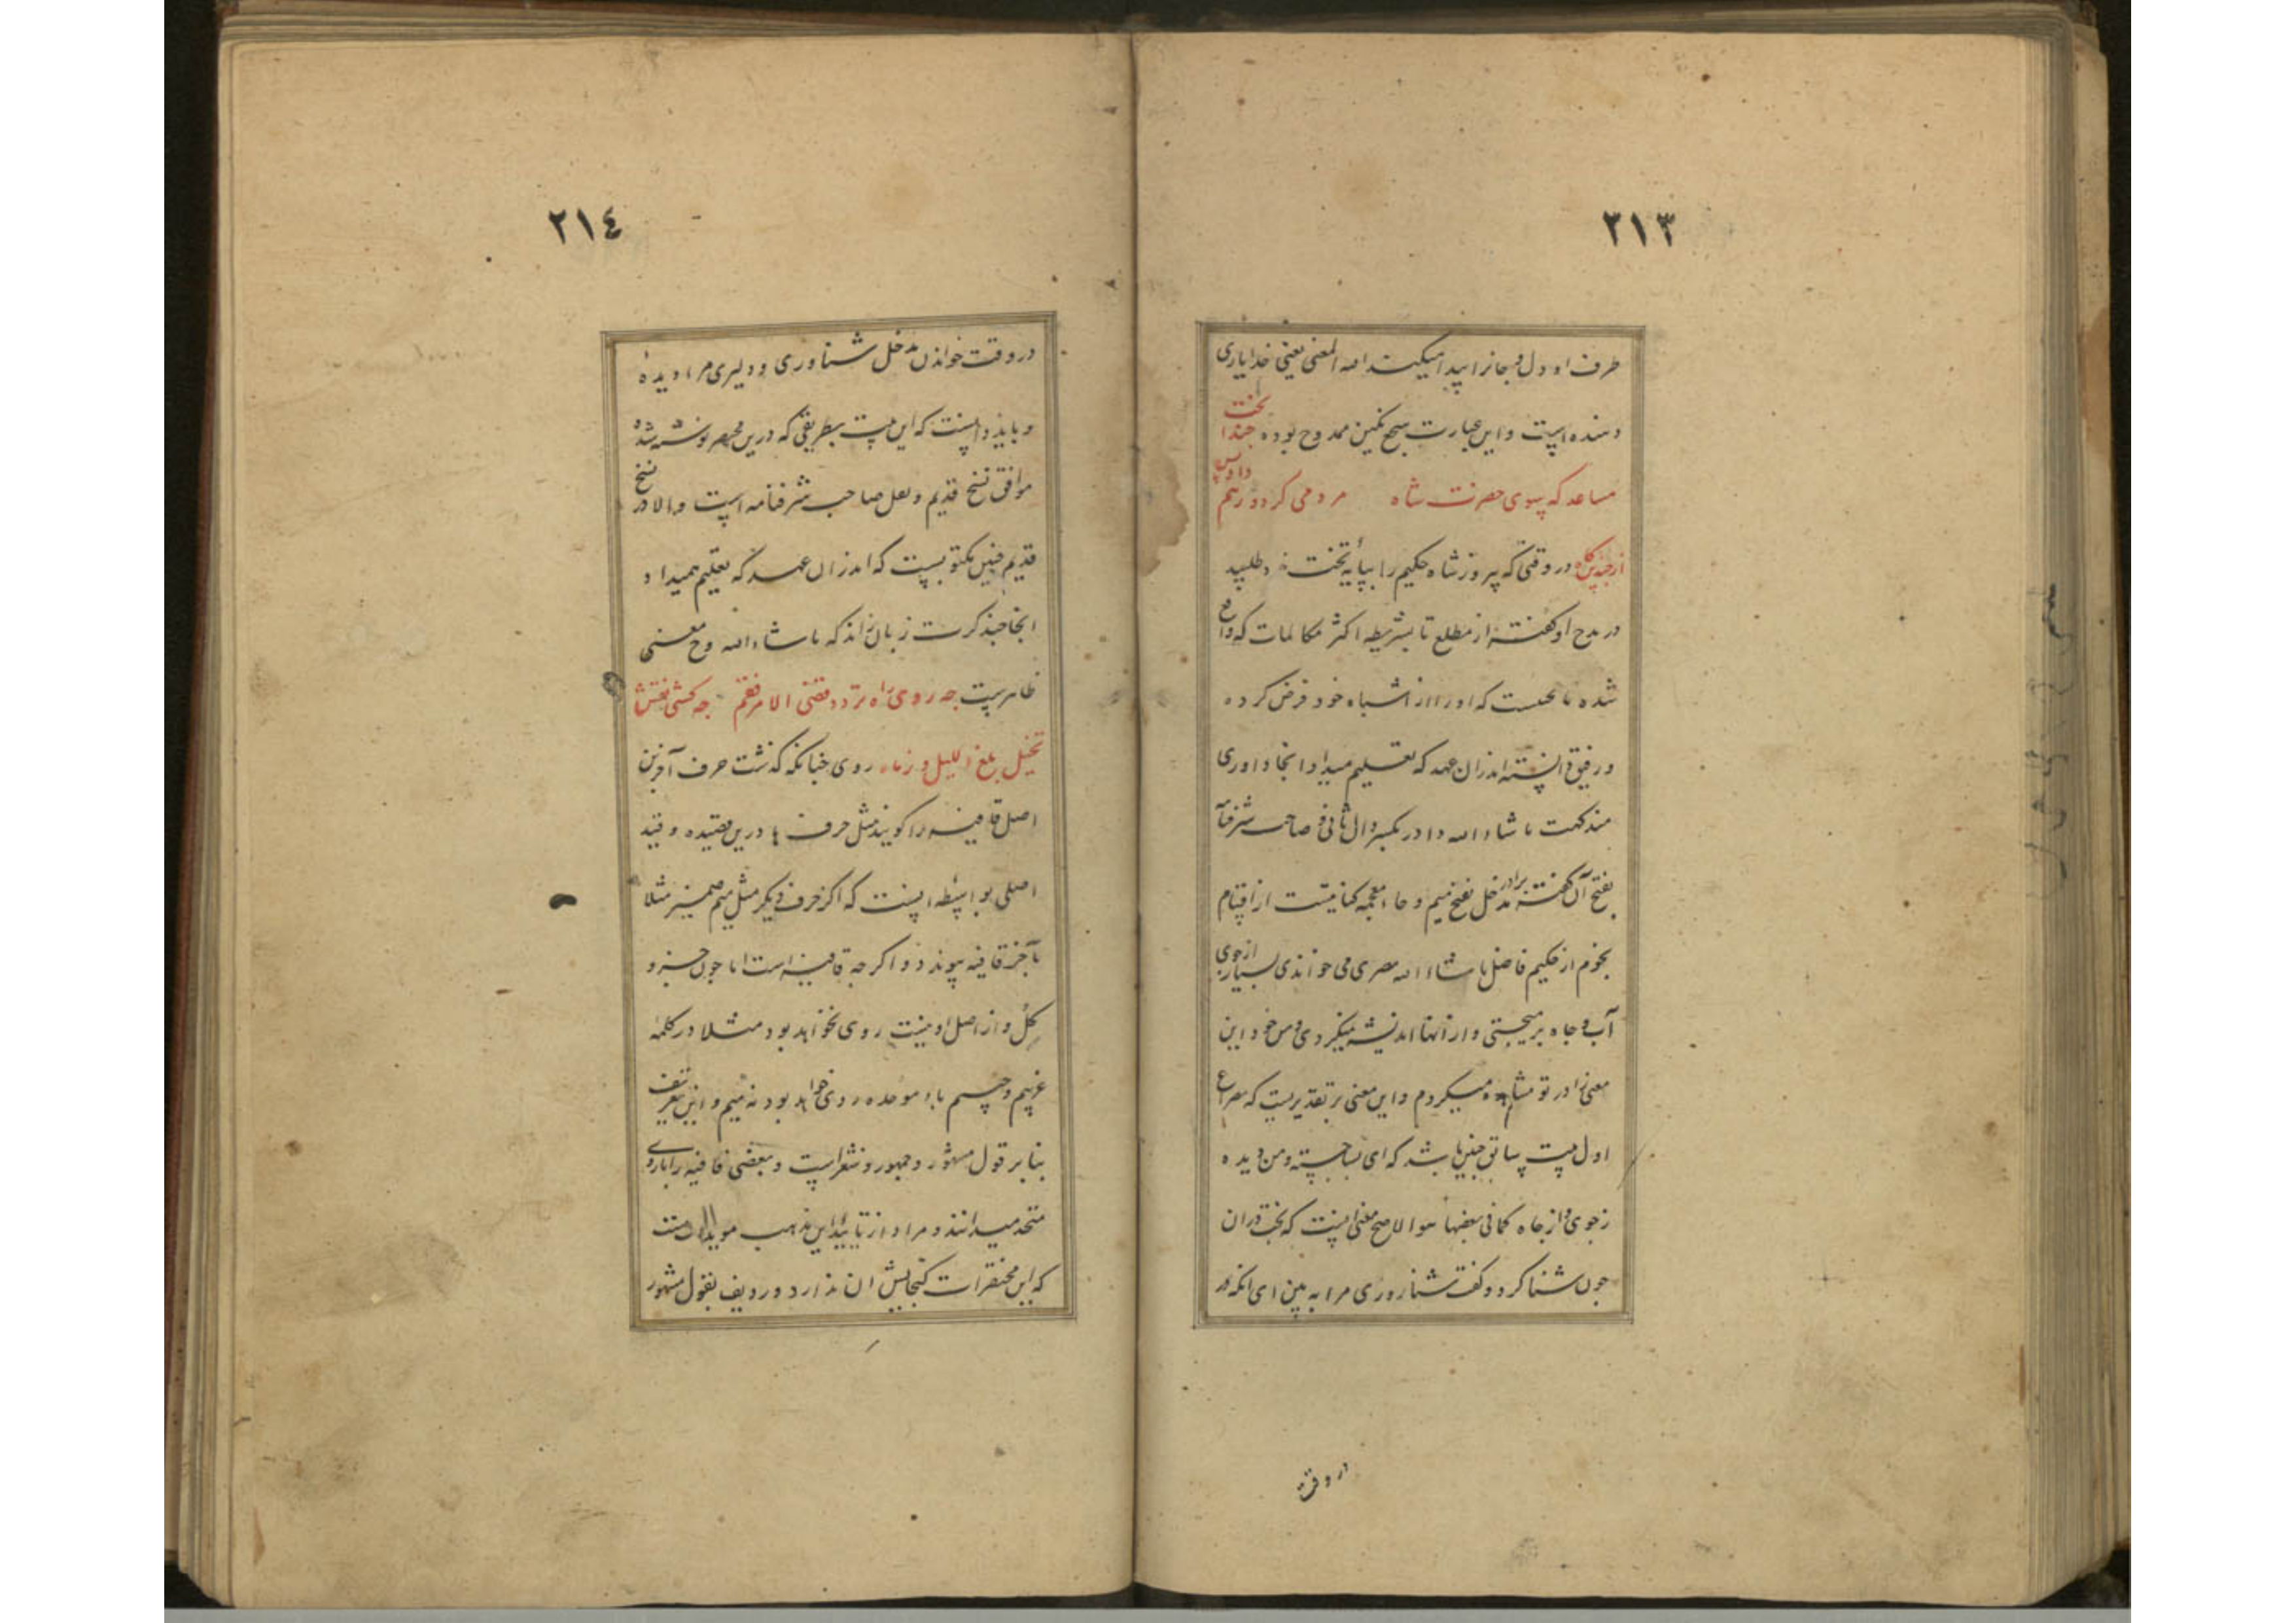 ٢١٣
طرف او دل و جانرا پیدا میکند المعنی یعنی خدا یاری
دهنده است و این عبارت سجع نکین ممدوح بوده حبذا بخت
مساعد که سوی حضرت شاه مردمی کرد و رهم داد پس
از چندین کاه در وقتی که پیروز شاه حکیم را بپایه تخت خود طلبید
در مدح او گفته از مطلع تا بشریطه اکثر مکالمات که واقع
شده با بختست که او را از اشباه خود فرض کرده
و رفیق دانسته اندران عهد که تعلیم میداد انجا داوری
گفت ما شاء الله دادر بکسر دال ثانی و صاحب شرفنامه
بفتح آن گفته برادر مدخل بفتح میم و خاء معجمه کنایتست از اقسام
نجوم از حکیم فاضل ما شاء الله مصری می خواندی بسیار از جوی
آب و چاه برمیجستی و از آنها اندیشه نمیکردی و من خود این
معنی را در تو مشاهده میکردم و این معنی بر تقدیریست که مصراع
اول بیت سابق چنین باشد که ای بسا جسته و من دیده
ز جوی و از چاه کما فی بعضها هو الاصح معنی اینست که بخت در ان
چون شنا کرد و گفت شناوری مرا به بین ای انکه در
در وقت
٢١٤
در وقت خواندن مدخل شناوری و دلیری مرا دیده
و باید دانست که این بیت بطریقی که درین مختصر نوشته شده
موافق نسخ قدیم و نقل صاحب شرفنامه است و الا در نسخ
قدیم چنین مکتوبست که اندران عهد که تعلیم همیداد
انجا حبذا کرت زبان راند که ما شاء الله وح معنی
ظاهرست چه روی راه تردد قضی الامر فقم چه کنی نقش
تخیل بلغ اللیل و زماه روی چنانکه گذشت حرف آخرین
اصل قافیه را گویند مثل حرف ها درین قصیده و قید
اصلی بواسطه اینست که اگر حرف دیگر مثل میم ضمیر مثلا
بآخر قافیه پیوندد و اگر چه قافیه است اما چون جزو
کل و از اصل او نیست روی نخواهد بود مثلا در کلمه
غریبم و حبیبم باء موحده روی خواهد بود نه میم و این تعریف
بنابر قول مشهور و جمهور و شعراست و بعضی قافیه را با روی
متحد میدانند و مراد از تایید این مذهب
که این مختصرات گنجایش ان ندارد و ردیف بقول مشهور